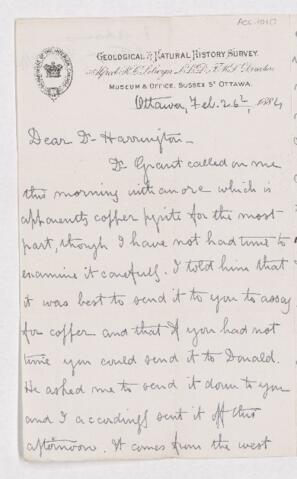 GEOLOGICAL & NATURAL HISTORY SURVEY.
Alfred R. C. Selwyn, L.L.D., F.R.S. Director
MUSEUM & OFFICE, SUSSEX ST OTTAWA.
Ottawa, Feb. 26th, 1884
Dear Dr Harrington –
Dr Grant called on me
this morning with an ore which is
apparently copper pyrite for the most
part, though I have not had time to
examine it carefully. I told him that
it was best to send it to you to assay
for copper and that if you had not
time you could send it to Donald.
He asked me to send it down to you
and I accordingly sent it off this
afternoon. It comes from the west